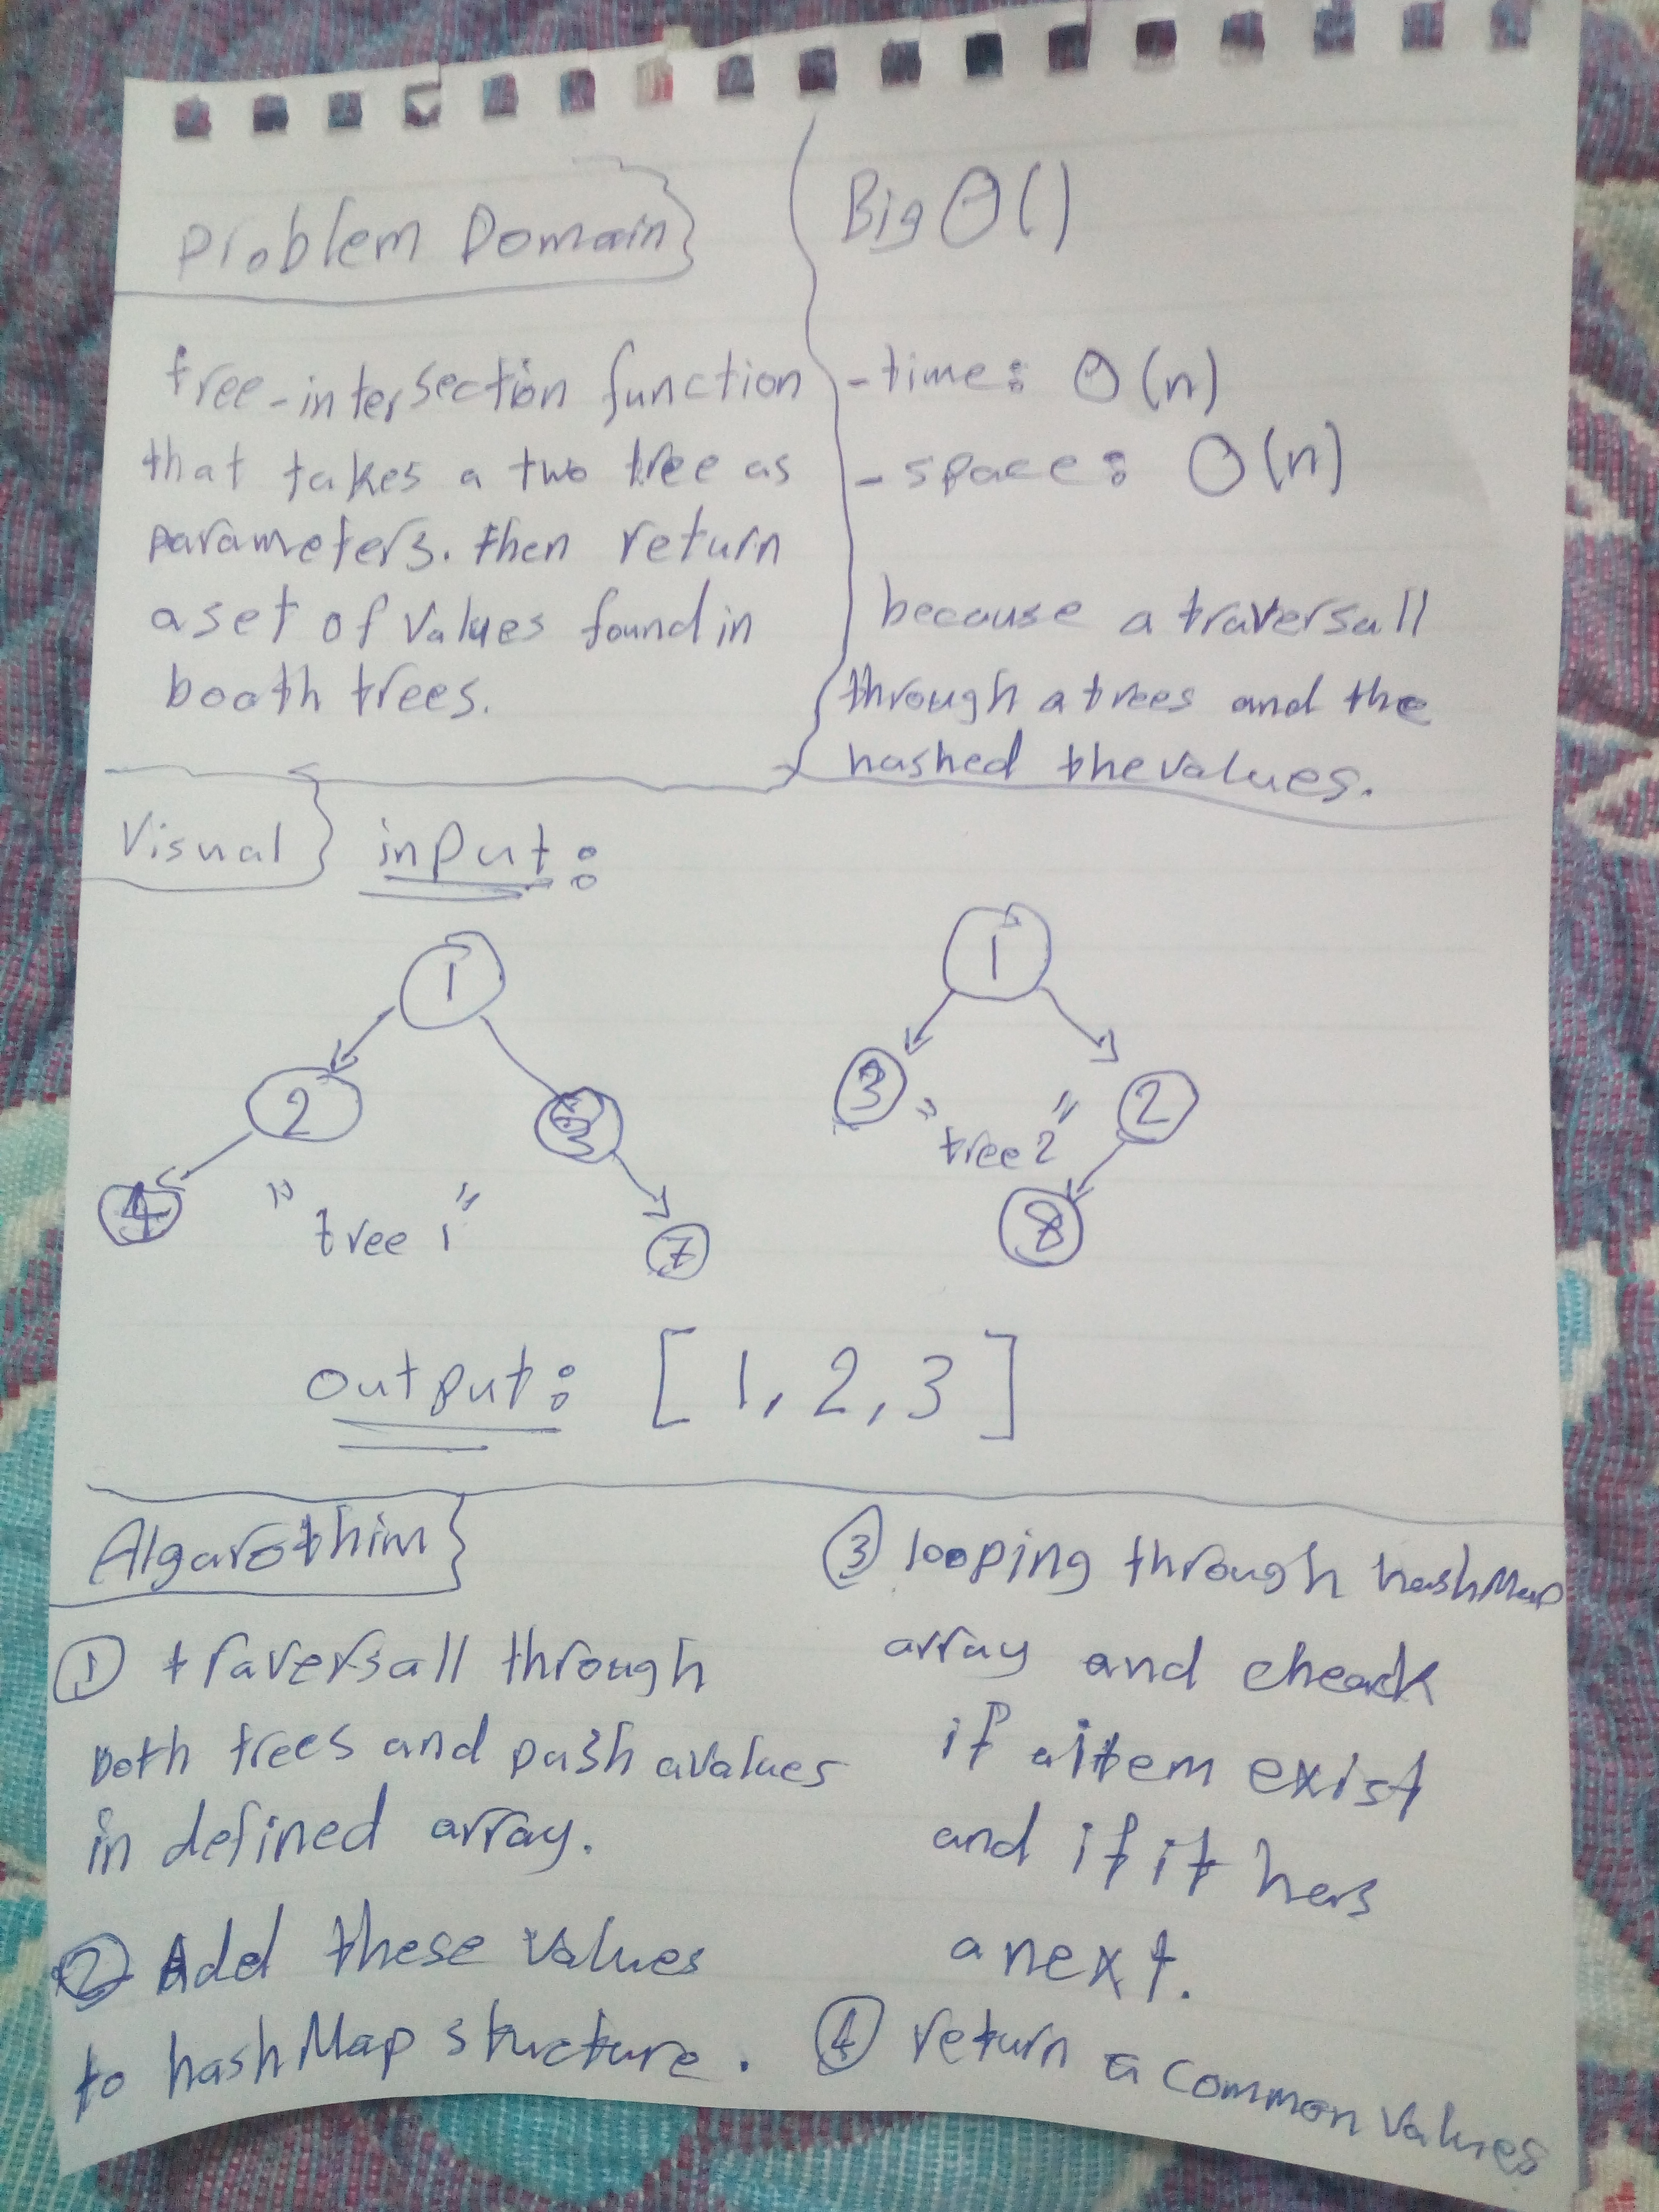 Problem Domain
tree-intersection function
that takes a two tree as
parameters. then return
a set of values found in
booth trees.
Big O()
- time: O(n)
- space: O(n)
because a traversall
through a trees and the
hashed the values.
Visual
input:
1
2
3
4
7
"tree 1"
1
3
2
8
"tree 2"
output: [1, 2, 3]
Algarothim
① traversall through
both trees and push avalues
in defined array.
② Add these values
to hashMap structure.
③ looping through hashMap
array and cheack
if aitem exist
and if it has
a next.
④ return a common values